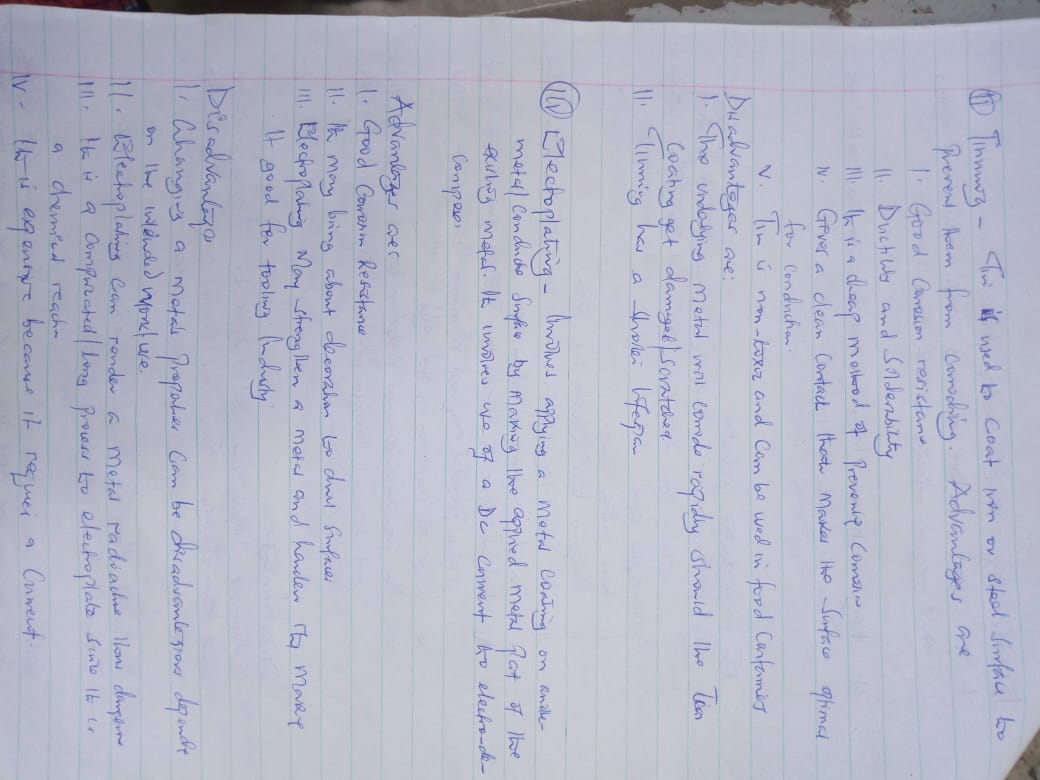 (ii) Tinning - Tin is used to Coat iron or steel Surface to
prevent them from corroding. Advantages are
I. Good Corrosion resistance
II. Ductility and Solderability
III. It is a cheap method of Prevening Corrosion
IV. Gives a clean Contact that Makes the Surface optimal
for condiction.
V. Tin is non-toxic and Can be used in food Containers
Disadvantages are:
I. The underlying metal will corrode rapidly should the Tin
Coating get damaged/Scratched
II. Tinning has a shorter lifespan
(iv) Electroplating - Involves applying a Metal Coating on anothe-
metal/Conductive Surface by Making the applied metal Part of the
existing metal. It involves use of a DC Current to electro-de-
Advantages are
I. Good Corrosion Resistance
II. It may bring about decoration to dull Surfaces
III. Electroplating May strengthen a metal and harden thus Making
It good for tooling Industry
Disadvantages
I. Changing a metals Properties Can be disadvantegious dependt
on the intended work/use.
II. Electroplating Can render a Metal radioactive thus dangerous
III. It is a Complicated/long process to electroplate Since It is
a chemical reaction
IV. It is expensive because it requires a Current.